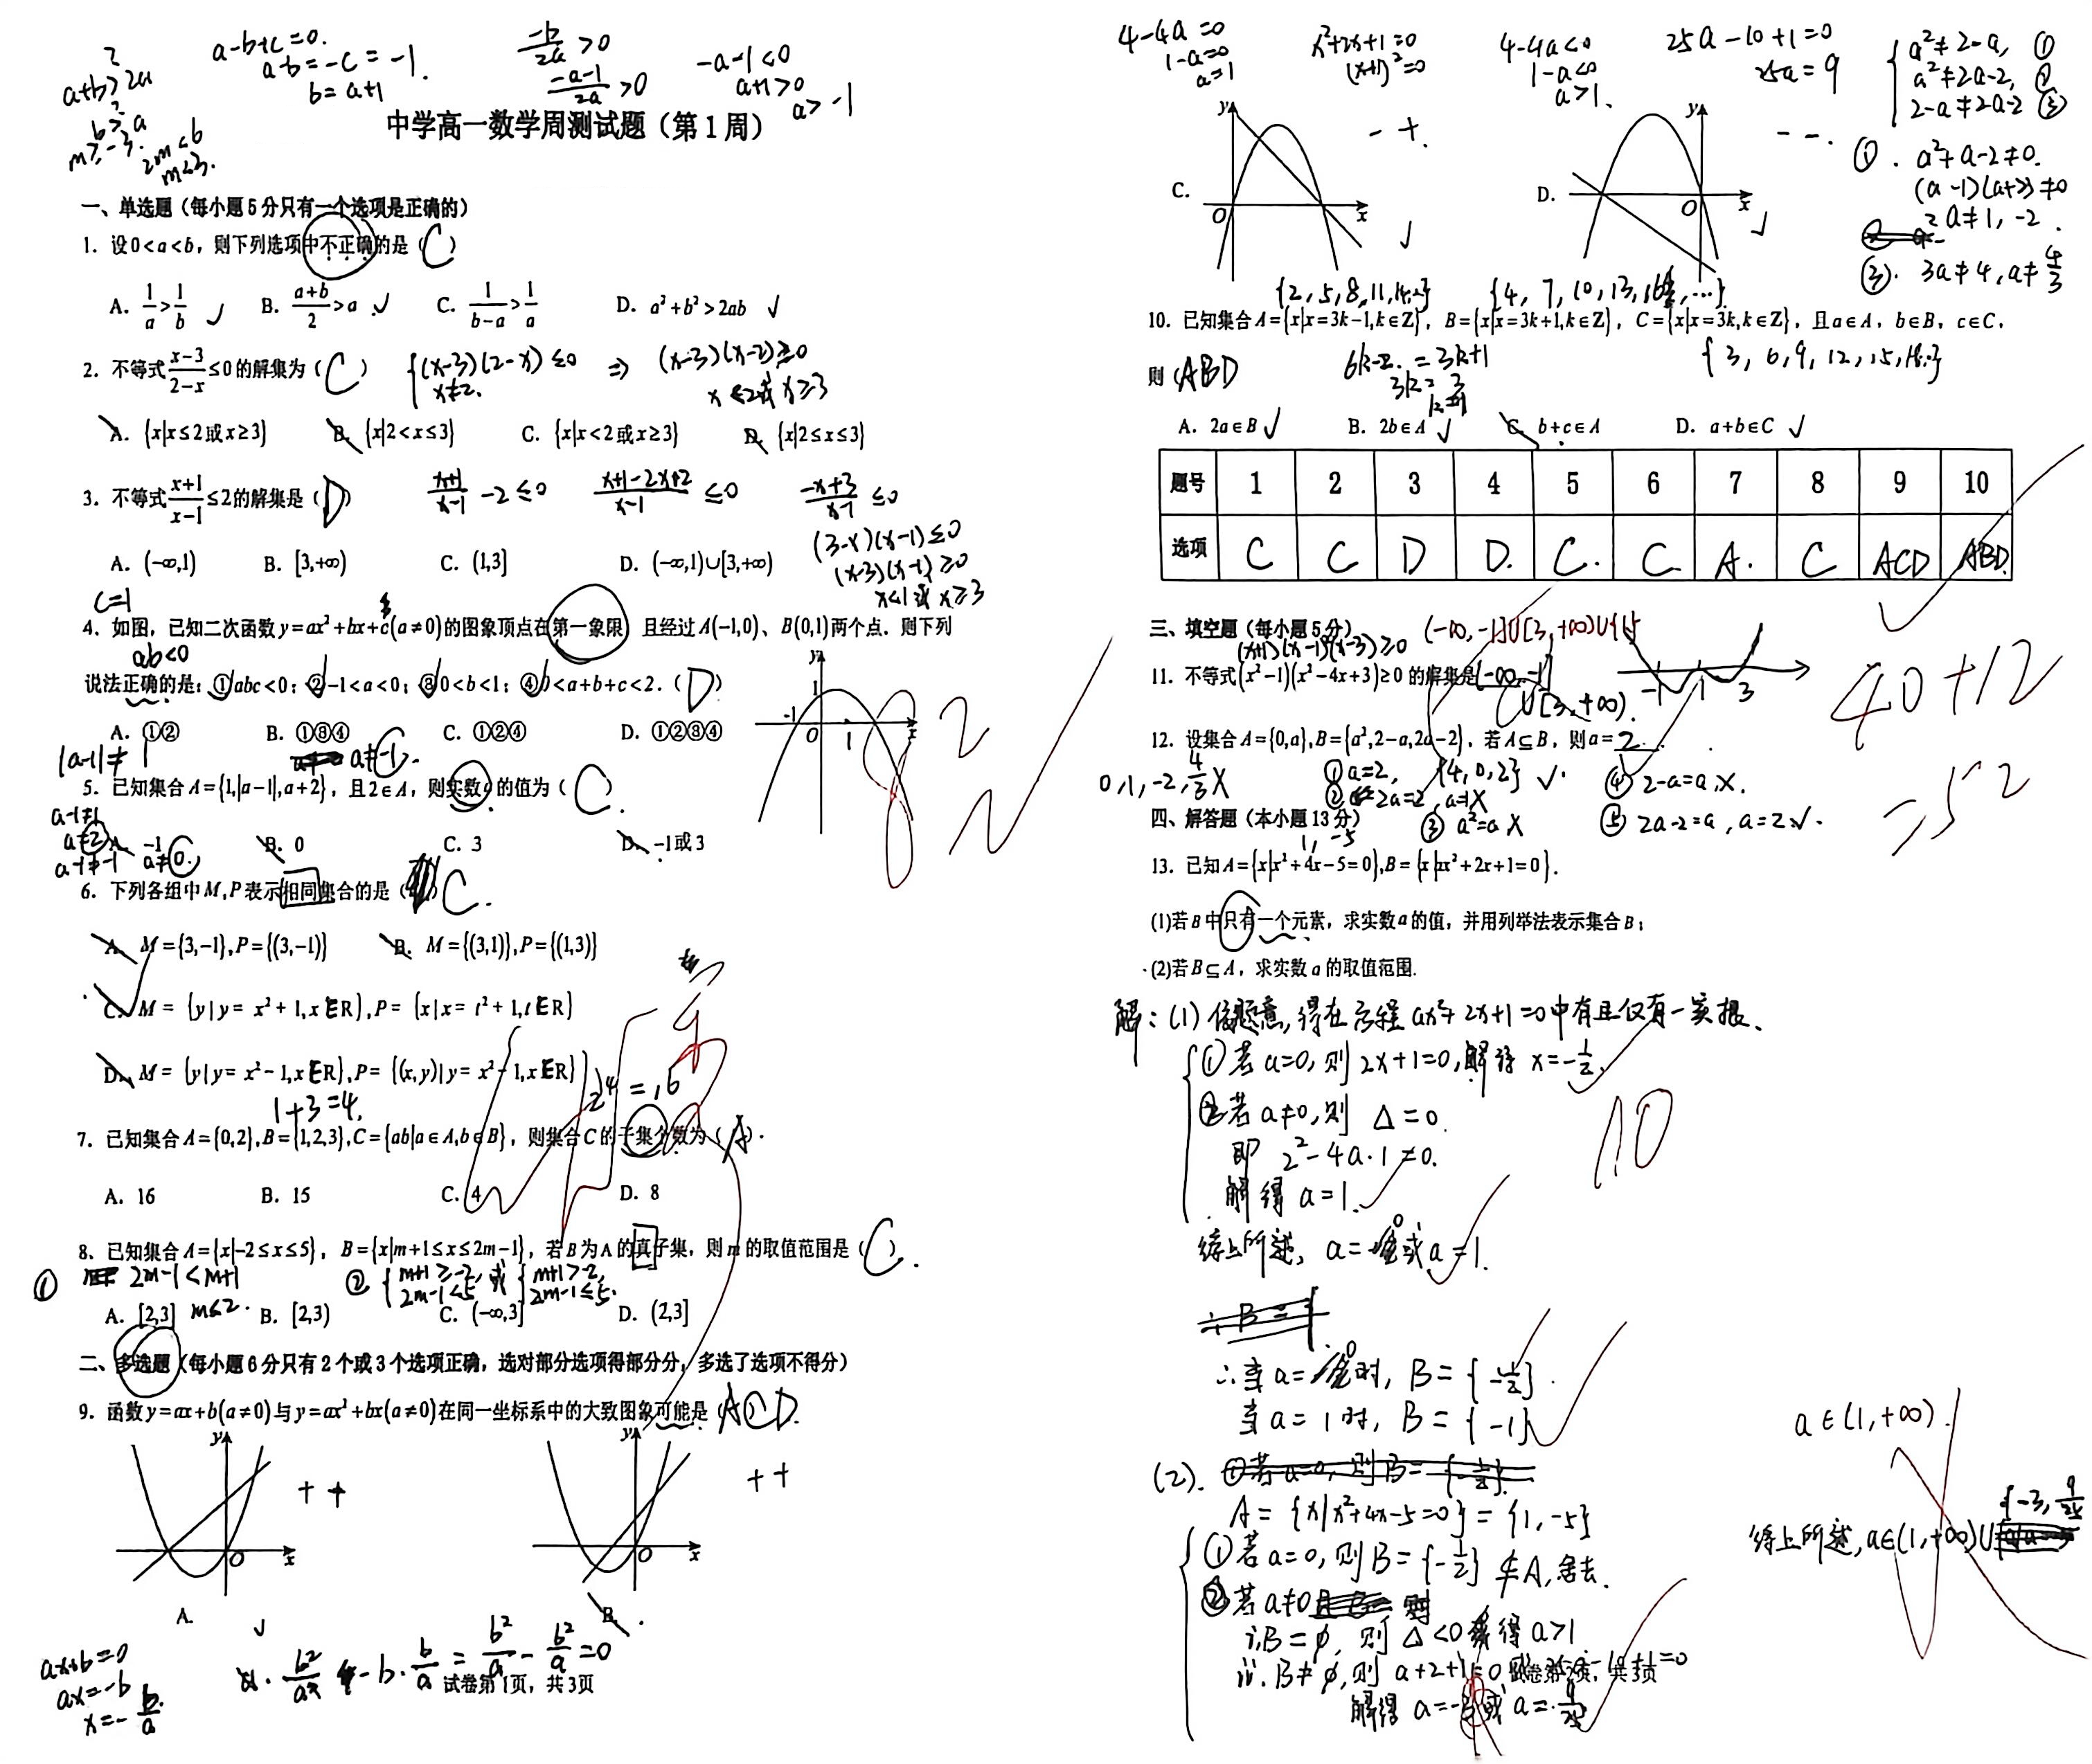 a-b+c=0.
a-b=-c=-1.
b=a+1
-b/2a>0
-a-1/2a>0
-a-1<0
a+1>0
a>-1
a+b>2a
b>a
m≥-3.
2m<b
m<3.
中学高一数学周测试题（第1周）
一、单选题（每小题5分只有一个选项是正确的）
1．设0<a<b，则下列选项中不正确的是（C）
A．1/a>1/b √ B．(a+b)/2>a √ C．1/(b-a)>1/a D．a²+b²>2ab √
2．不等式(x-3)/(2-x)≤0的解集为（C） {(x-3)(2-x)≤0 ⇒ (x-3)(x-2)≥0
x≠2. x<2或x≥3
A．{x|x≤2或x≥3} B．{x|2<x≤3} C．{x|x<2或x≥3} D．{x|2≤x≤3}
3．不等式(x+1)/(x-1)≤2的解集是（D） (x+1)/(x-1)-2≤0 (x+1-2x+2)/(x-1)≤0 (-x+3)/(x-1)≤0
(3-x)(x-1)≤0
A．(-∞,1) B．[3,+∞) C．(1,3] D．(-∞,1)∪[3,+∞)
(x-3)(x-1)≥0
x<1或x≥3
c=1
4．如图，已知二次函数y=ax²+bx+c(a≠0)的图象顶点在第一象限，且经过A(-1,0)、B(0,1)两个点．则下列
ab<0
说法正确的是：①abc<0；②-1<a<0；③0<b<1；④0<a+b+c<2．（D）
A．①② B．①③④ C．①②④ D．①②③④
y 1 -1 O 1 x
|a-1|≠1 a≠-1.
5．已知集合A={1,|a-1|,a+2}，且2∈A，则实数a的值为（C）
a-1≠1
a≠2
a-1≠-1 a≠0.
A．-1 B．0 C．3 D．-1或3
6．下列各组中M,P表示相同集合的是（ ）C.
A．M={3,-1},P={(3,-1)} B．M={(3,1)},P={(1,3)}
C．M={y|y=x²+1,x∈R},P={x|x=t²+1,t∈R}
D．M={y|y=x²-1,x∈R},P={(x,y)|y=x²-1,x∈R}
1+3=4. 2⁴=16
7．已知集合A={0,2},B={1,2,3},C={ab|a∈A,b∈B}，则集合C的子集个数为（A）．
A．16 B．15 C．4 D．8
8、已知集合A={x|-2≤x≤5}，B={x|m+1≤x≤2m-1}，若B为A的真子集，则m的取值范围是（C）.
① 2m-1<m+1 ② {m+1≥-2, 2m-1<5 或 {m+1>-2, 2m-1≤5.
m<2.
A．[2,3] B．[2,3) C．(-∞,3] D．(2,3]
二、多选题（每小题6分只有2个或3个选项正确，选对部分选项得部分分，多选了选项不得分）
9．函数y=ax+b(a≠0)与y=ax²+bx(a≠0)在同一坐标系中的大致图象可能是（ACD）
y O x + +
y O x + +
A. √ B.
ax+b=0
ax=-b
x=-b/a
a·b²/a²-b·b/a=b²/a-b²/a=0
试卷第1页，共3页
4-4a=0
1-a=0
a=1
x²+2x+1=0
(x+1)²=0
4-4a<0
1-a<0
a>1.
25a-10+1=0
25a=9
{a²≠2-a, ①
a²≠2a-2, ②
2-a≠2a-2 ③
①. a²+a-2≠0.
(a-1)(a+2)≠0
a≠1,-2.
③. 3a≠4,a≠4/3
C. y O x - +. √
D. y O x - -. √
{2,5,8,11,14,…} {4,7,10,13,16,…}
10．已知集合A={x|x=3k-1,k∈Z}，B={x|x=3k+1,k∈Z}，C={x|x=3k,k∈Z}，且a∈A，b∈B，c∈C，
则（ABD 6k-2=3k+1 {3,6,9,12,15,18…}
3k=3
k=1
A．2a∈B √ B．2b∈A √ C．b+c∈A D．a+b∈C √
题号 1 2 3 4 5 6 7 8 9 10
选项 C C D D. C. C. A. C ACD ABD.
三、填空题（每小题5分）
(-∞,-1]∪[3,+∞)∪{1}
(x+1)(x-1)(x-3)≥0
11．不等式(x²-1)(x²-4x+3)≥0的解集是(-∞,-1]
∪[3,+∞).
-1 1 3
40+12
=52
12．设集合A={0,a},B={a²,2-a,2a-2}，若A⊆B，则a=2.
0,1,-2,4/3 X ①a=2, {4,0,2} √. ④2-a=a,X.
②2a=2,a=1X
四、解答题（本小题13分）
③a²=a X ⑤2a-2=a,a=2√.
1,-5
13．已知A={x|x²+4x-5=0},B={x|ax²+2x+1=0}．
(1)若B中只有一个元素，求实数a的值，并用列举法表示集合B；
(2)若B⊆A，求实数a的取值范围.
解：(1)依题意,得在方程ax²+2x+1=0中有且仅有一实根.
①若a=0,则2x+1=0,解得x=-1/2.
②若a≠0,则Δ=0.
即2²-4a·1=0.
解得a=1.
10
综上所述,a=0或a=1.
∴当a=0时,B={-1/2}.
当a=1时,B={-1}
(2). ①若a=0,则B={-1/2}.
A={x|x²+4x-5=0}={1,-5}
①若a=0,则B={-1/2}⊈A,舍去.
②若a≠0 则
i.B=∅,则Δ<0解得a>1
ii.B≠∅,则a+2+1=0或25a-10+1=0
试卷第2页，共3页
解得a=-3或a=9/25
a∈(1,+∞).
综上所述,a∈(1,+∞)∪{-3,9/25